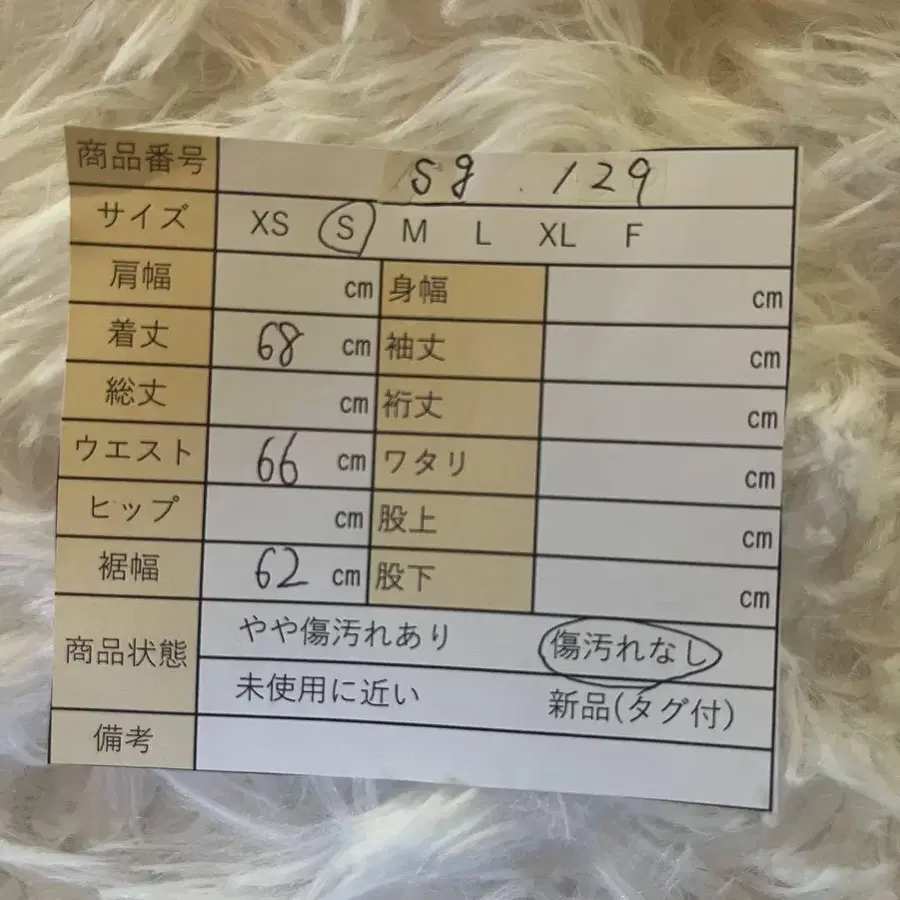 商品番号 sg.129
サイズ XS S M L XL F
肩幅 cm 身幅 cm
着丈 68 cm 袖丈 cm
総丈 cm 裄丈 cm
ウエスト 66 cm ワタリ cm
ヒップ cm 股上 cm
裾幅 62 cm 股下 cm
商品状態 やや傷汚れあり 傷汚れなし
未使用に近い 新品(タグ付)
備考